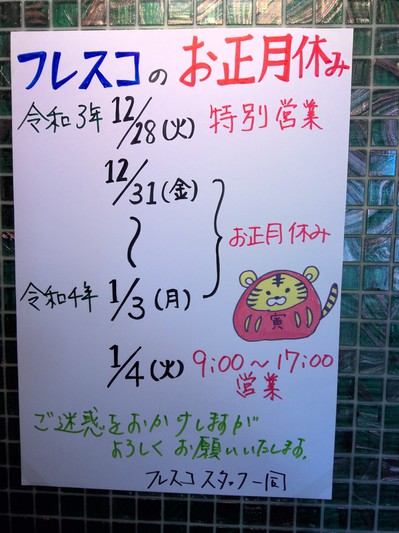 フレスコのお正月休み
令和3年 12/28(火) 特別営業
12/31(金)
〜
お正月休み
令和4年 1/3(月)
寅
1/4(火) 9:00〜17:00
営業
ご迷惑をおかけしますが
よろしくお願いいたします。
フレスコ スタッフ一同